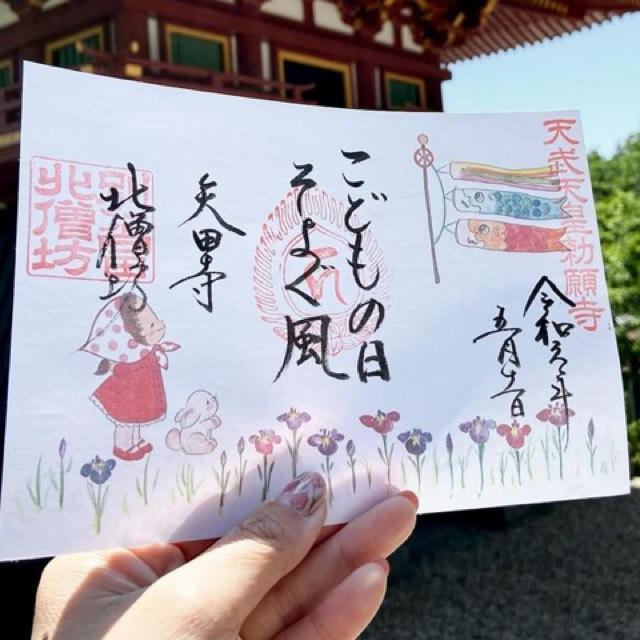 天武天皇勅願寺
令和元年
五月五日
こどもの日
そよぐ風
矢田寺
北僧坊
別當
北僧坊